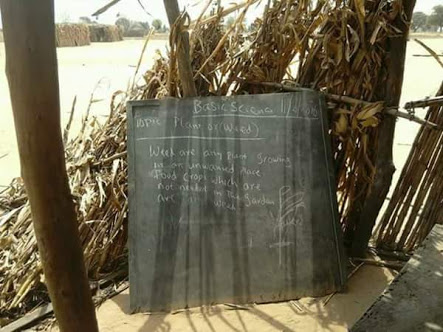 Basic Science
Topic Plant as (Weed)
Week are any plant growing
in an unwanted place
Food crops which are
not needed in the garden
are weed